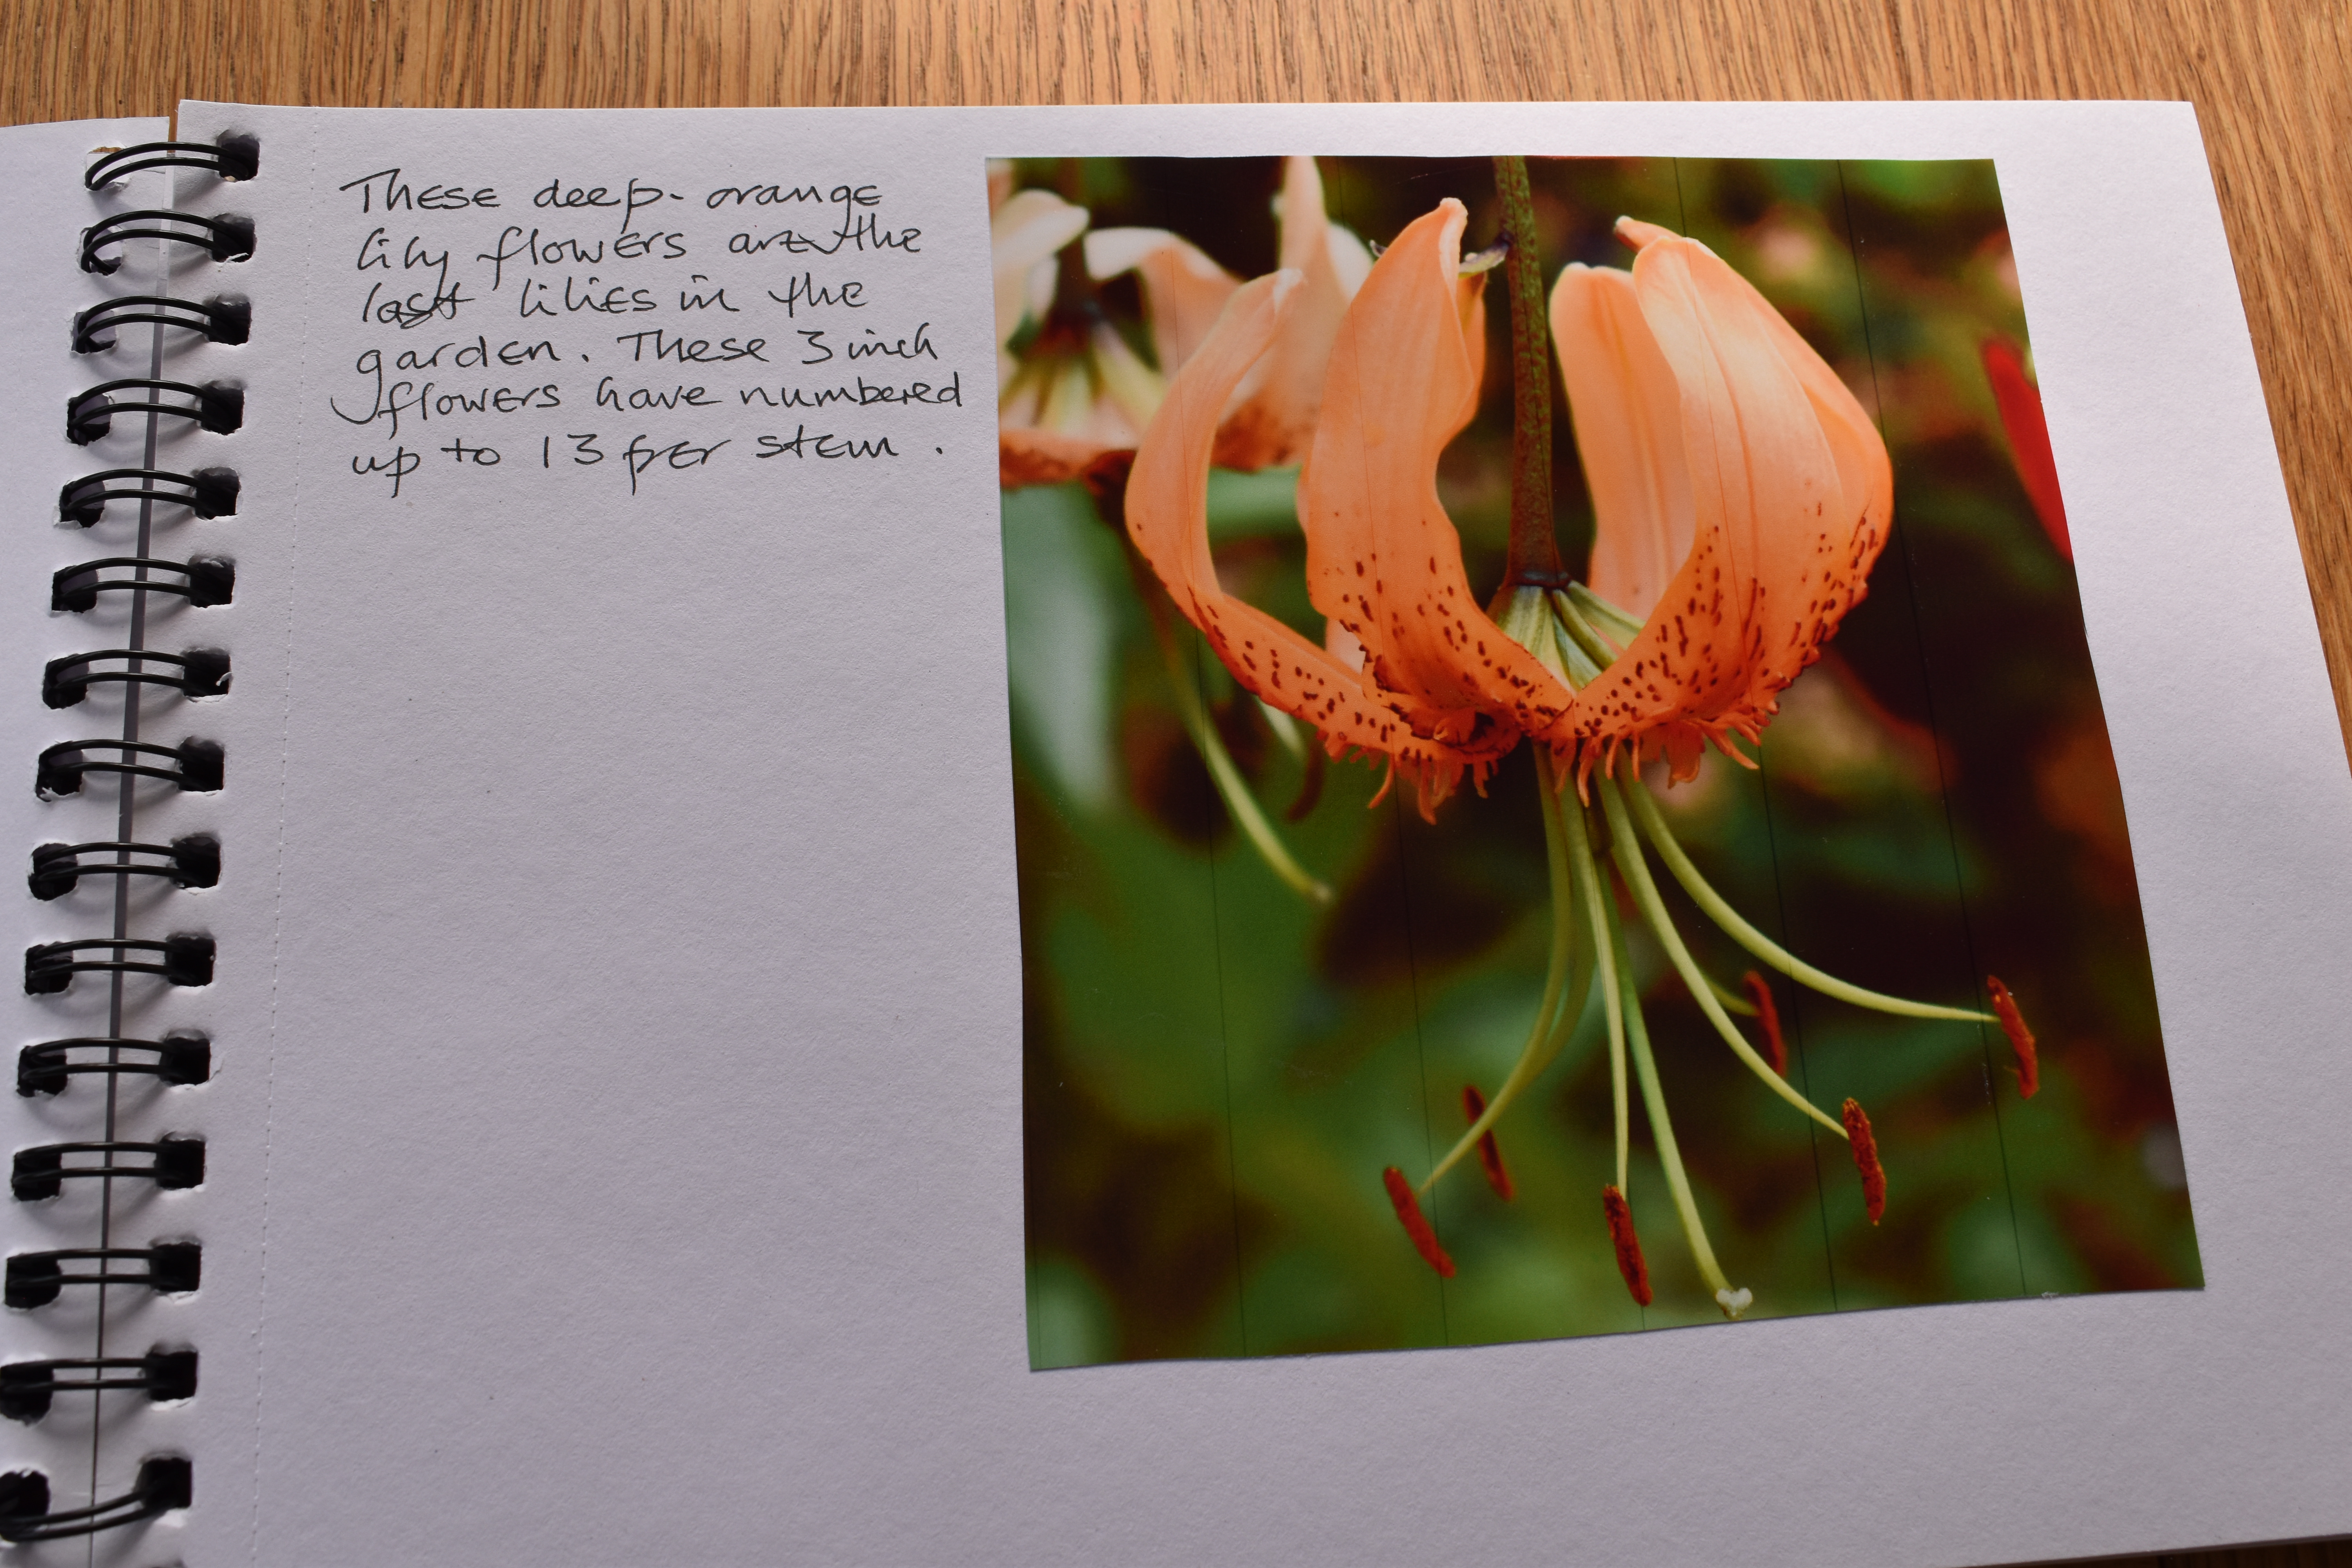 These deep-orange
lily flowers are the
last lilies in the
garden. These 3 inch
flowers have numbered
up to 13 per stem.